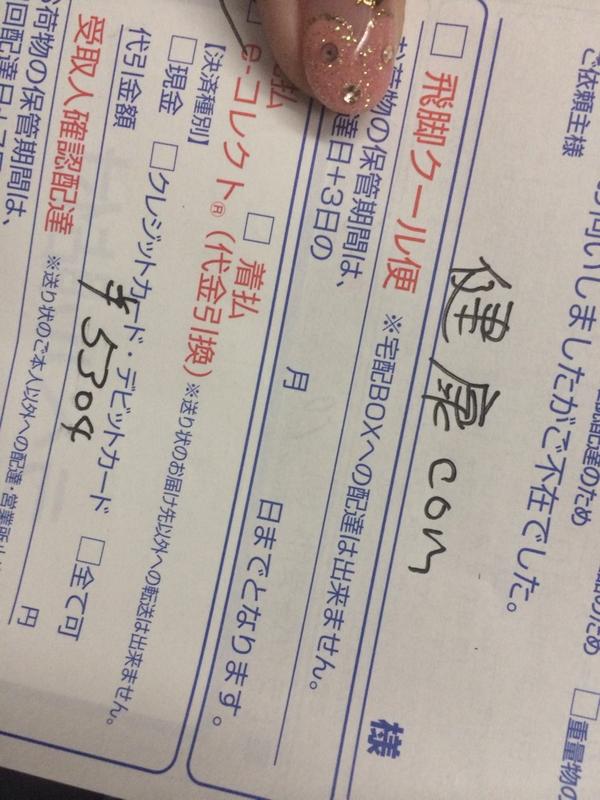 ご依頼主様
確認配達のため
□重量物の
お伺いしましたがご不在でした。
健康con 様
□飛脚クール便 ※宅配BOXへの配達は出来ません。
お荷物の保管期間は、
達日+3日の 月 日までとなります。
払 □着払
e-コレクト®(代金引換) ※送り状のお届け先以外への転送は出来ません。
【決済種別】
□現金 □クレジットカード・デビットカード □全て可
代引金額 ¥5304 円
受取人確認配達 ※送り状のご本人以外への配達・営業所
お荷物の保管期間は、